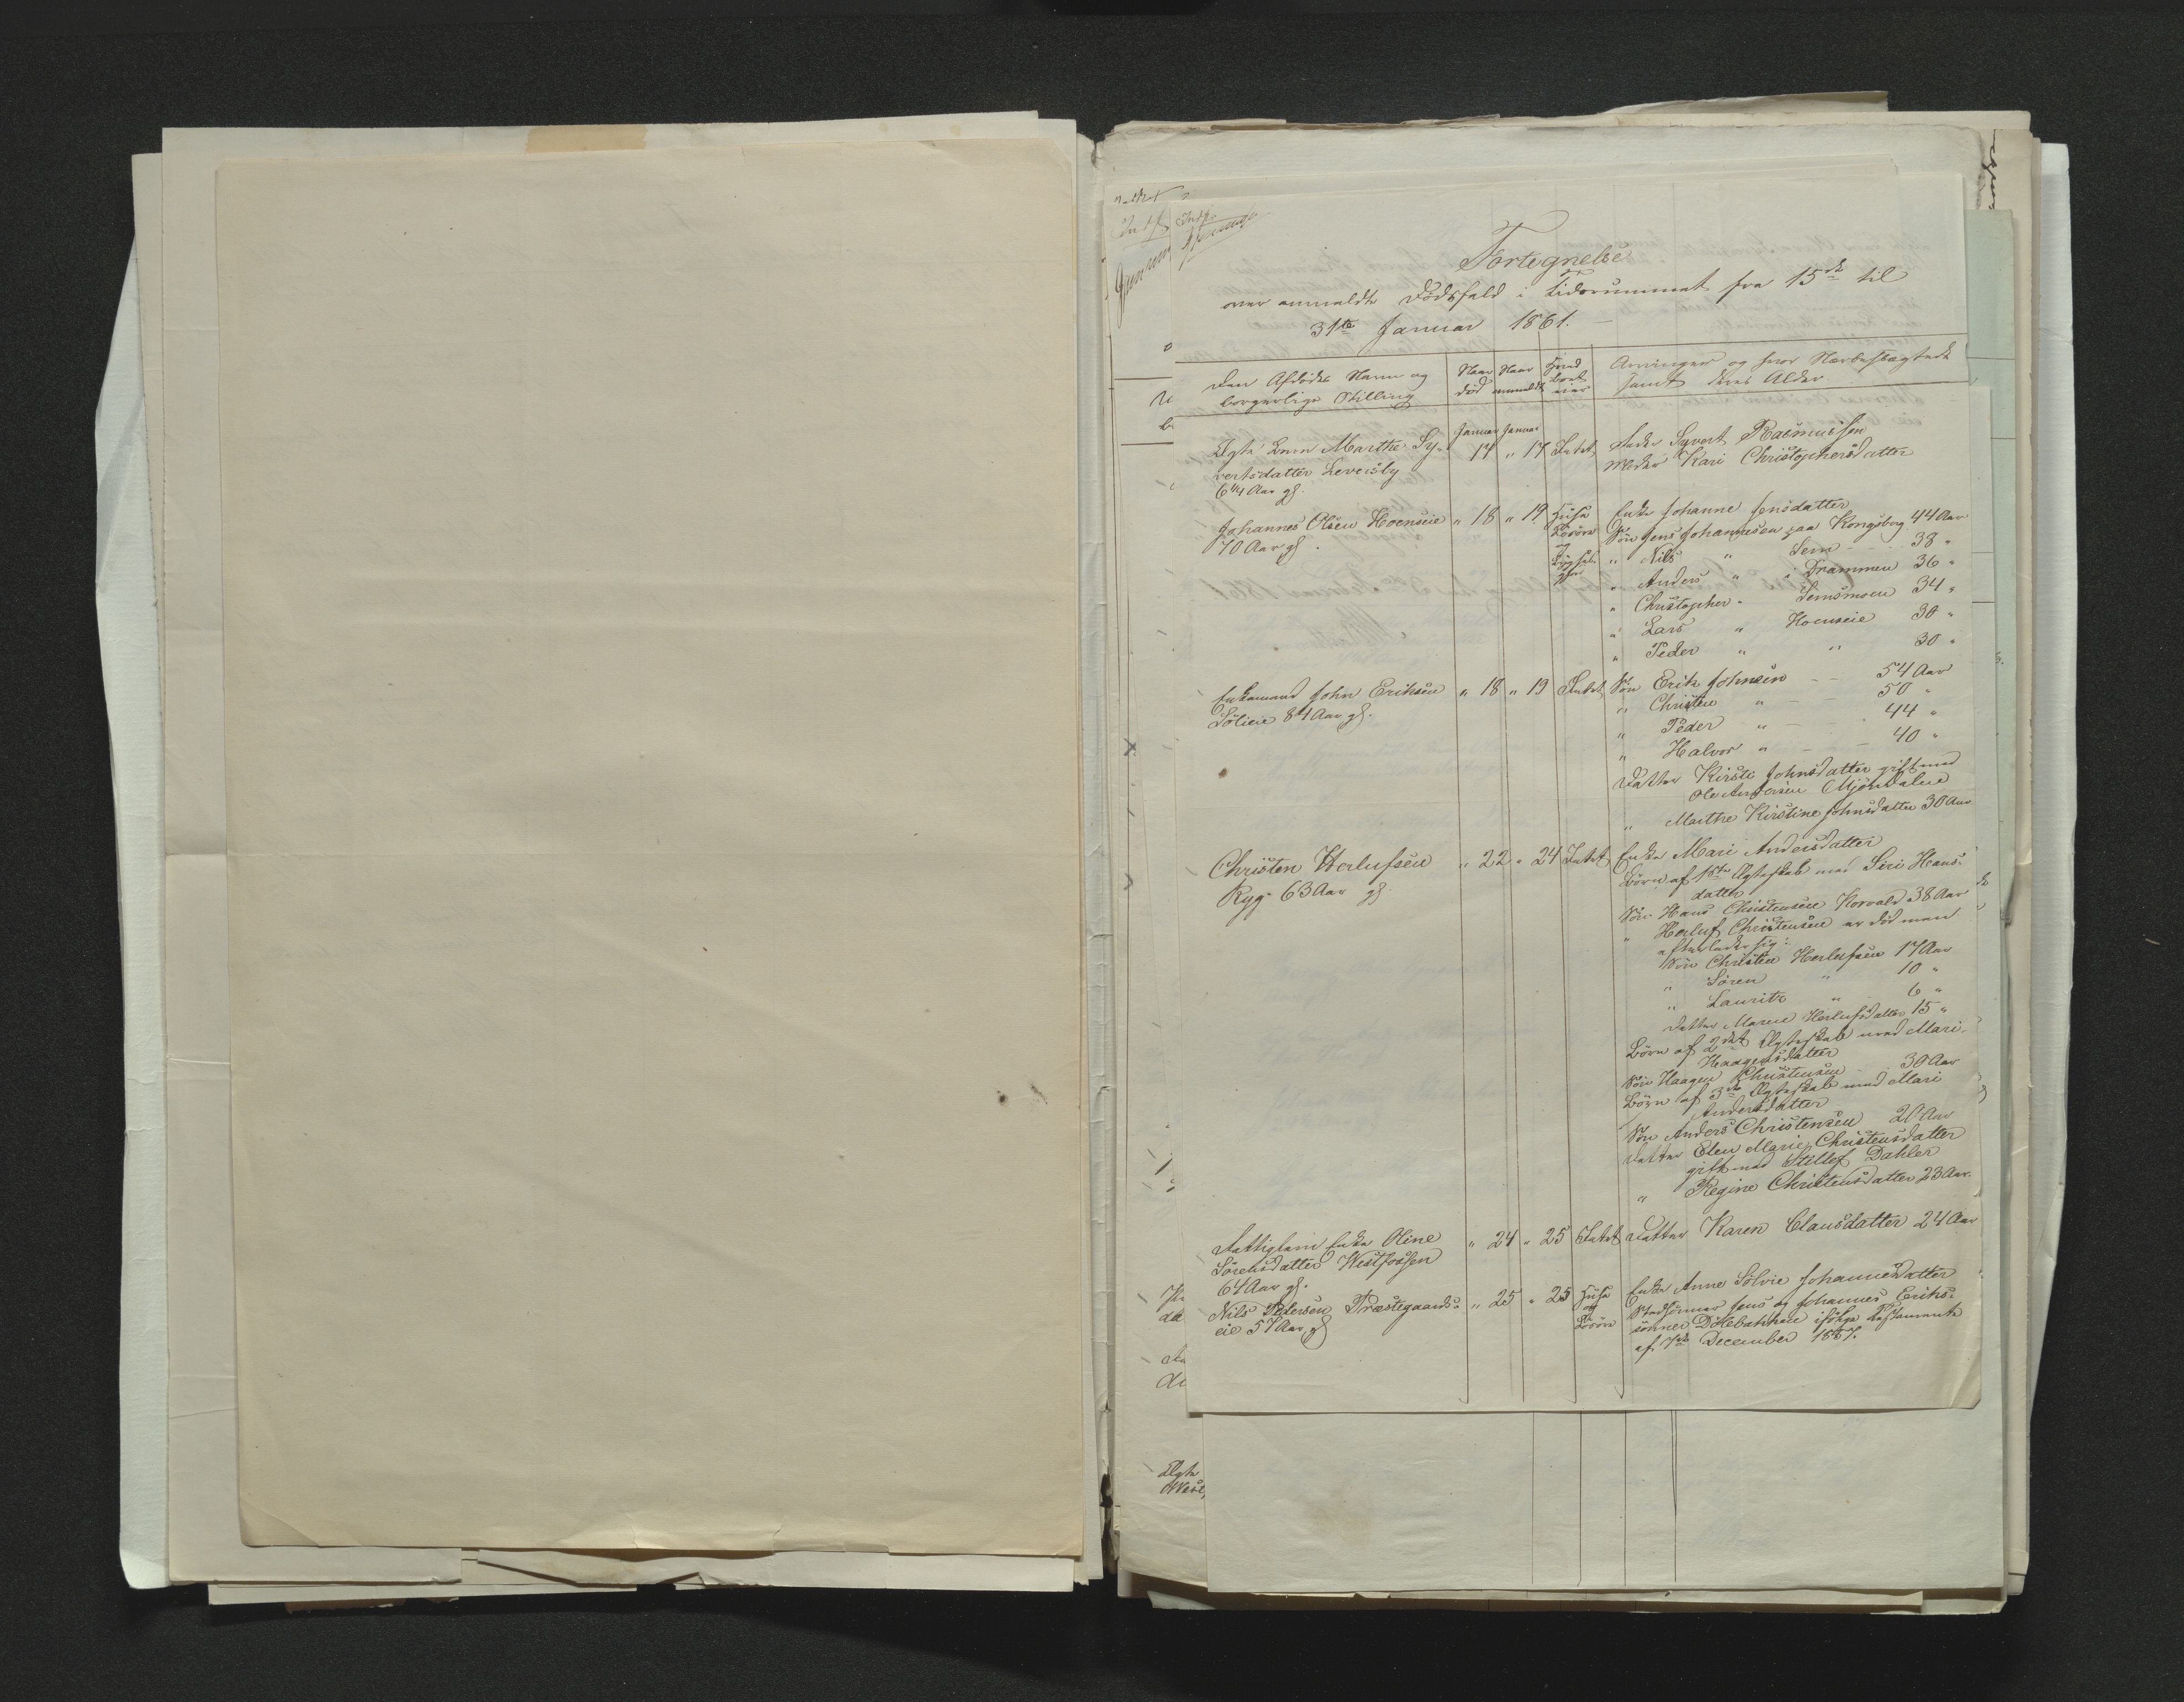 Fortegnelse
over anmeldte Dødsfald i Tidsrummet fra 15de til
31te Januar 1861.
Den Afdødes Navn og borgerlige Stilling
Naar død
Naar anmeldt
Hvad Boet eier
Arvinger og hvor Nærbeslægtede samt deres Alder
Januar Januar
Ægte Barn Marthe Sy-
vertsdatter Leversby
6 1/4 Aar gl.
14 " 17 Intet
Fader Syvert Rasmussen
Moder Kari Christophersdatter
Johannes Olsen Hoenseie
70 Aar gl.
" 18 " 19 Huse
Løsøre
og
Enke Johanne Jensdatter
Søn Jens Johannesen paa Kongsberg 44 Aar
" Nils " Sem 38 "
" Anders " i Drammen 36 "
" Christopher " Semsmoen 34 "
" Lars " Hoenseie 30 "
" Peder " " 30 "
Enkemand John Eriksen
Sølieie 84 Aar gl.
" 18 " 19 Intet
Søn Erik Johnsen 54 Aar
" Christen " 50 "
" Peder " 44 "
" Halvor " 40 "
Datter Kirsti Johnsdatter gift med
Ole Andersen Mjøndalen
" Marthe Kirstine Johnsdatter 30 Aar
Christen Herlufsen
Ryg 63 Aar gl.
" 22 " 24 Intet
Enke Mari Andersdatter
Børn af 1ste Ægteskab med Siri Hans-
datter
Søn Hans Christensen Korvald 38 Aar
" Herluf Christensen er død men
efterlader sig:
Søn Christen Herlufsen 17 Aar
" Søren " 10 "
" Lauritz " 6 "
Datter Maren Herlufsdatter 15 "
Børn af 2det Ægteskab med Mari
Haagensdatter
Søn Haagen Christensen 30 Aar
Børn af 3de Ægteskab med Mari
Andersdatter
Søn Anders Christensen 20 Aar
Datter Elen Marie Christensdatter
gift med Stillef Dahler
" Regine Christensdatter 23 Aar
Fattiglem Enke Oline
Sørensdatter Westfossen
64 Aar gl.
" 24 " 25 Intet
Datter Karen Clausdatter 24 Aar
Nils Pedersen Præstegaards-
eie 57 Aar gl
" 25 " 25 Huse
og
Løsøre
Enke Anne Sølvie Johannesdatter
Stedsønner Jens og Johannes Eriks-
sønner Dølebakken ifølge Testamente
af 7de December 1857.